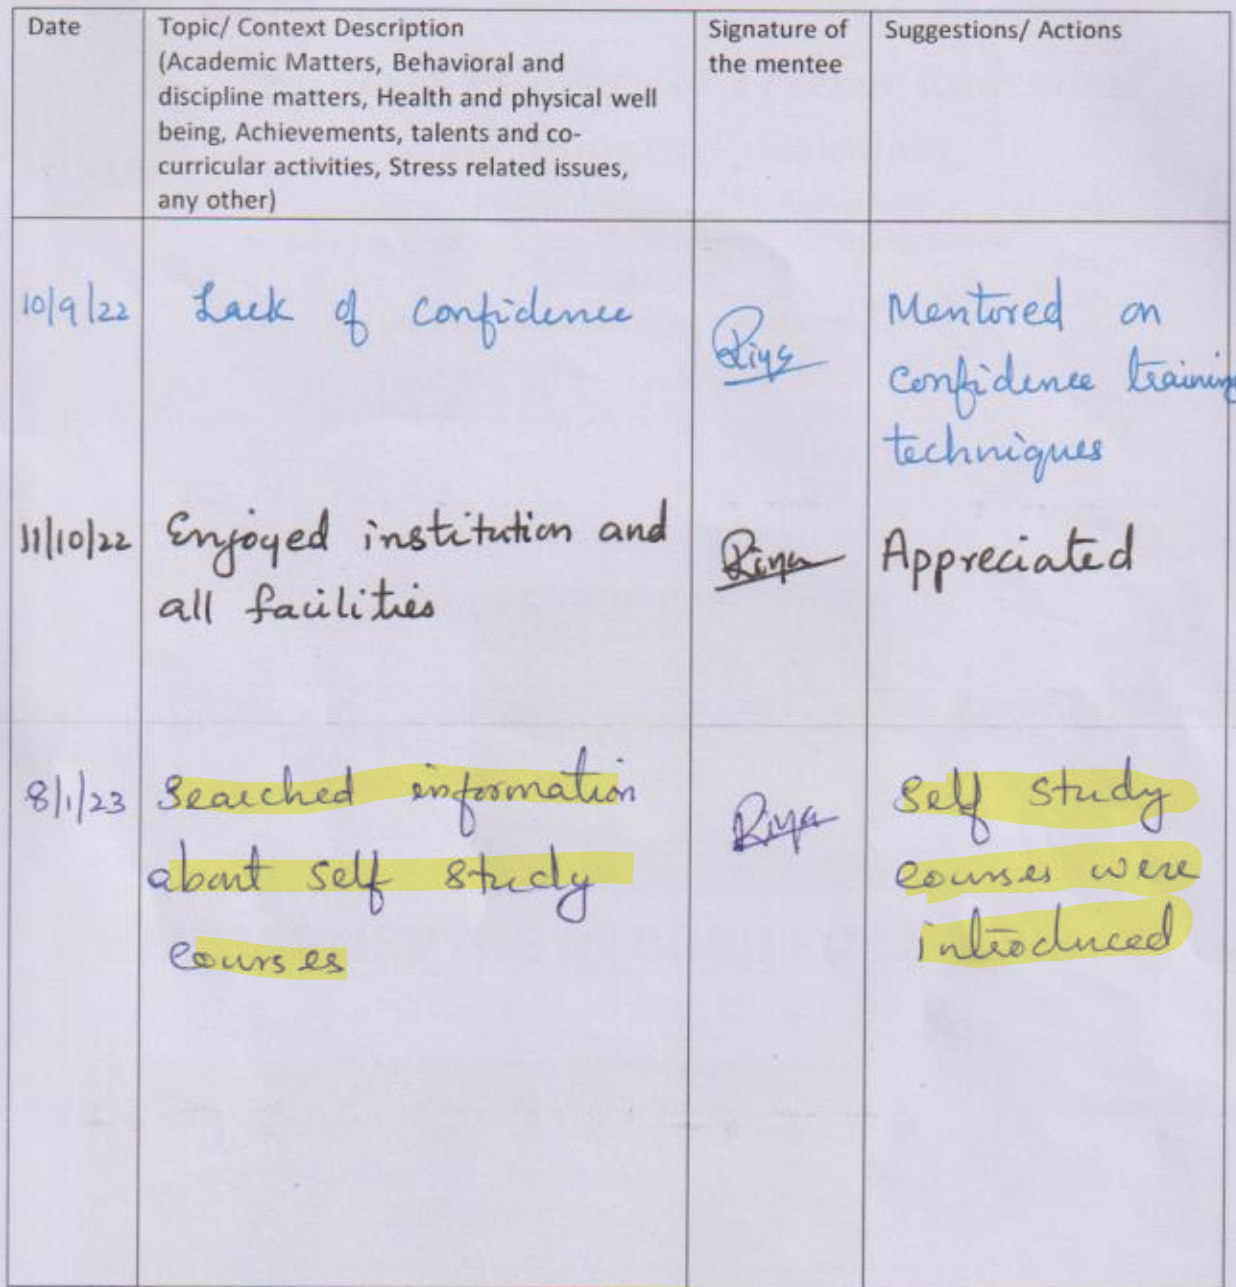 Date
Topic/ Context Description
(Academic Matters, Behavioral and
discipline matters, Health and physical well
being, Achievements, talents and co-
curricular activities, Stress related issues,
any other)
Signature of
the mentee
Suggestions/ Actions
10/9/22
Lack of confidence
Riya
Mentored on
confidence training
techniques
11/10/22
Enjoyed institution and
all facilities
Riya
Appreciated
8/1/23
Searched information
about self study
courses
Riya
Self study
courses were
introduced